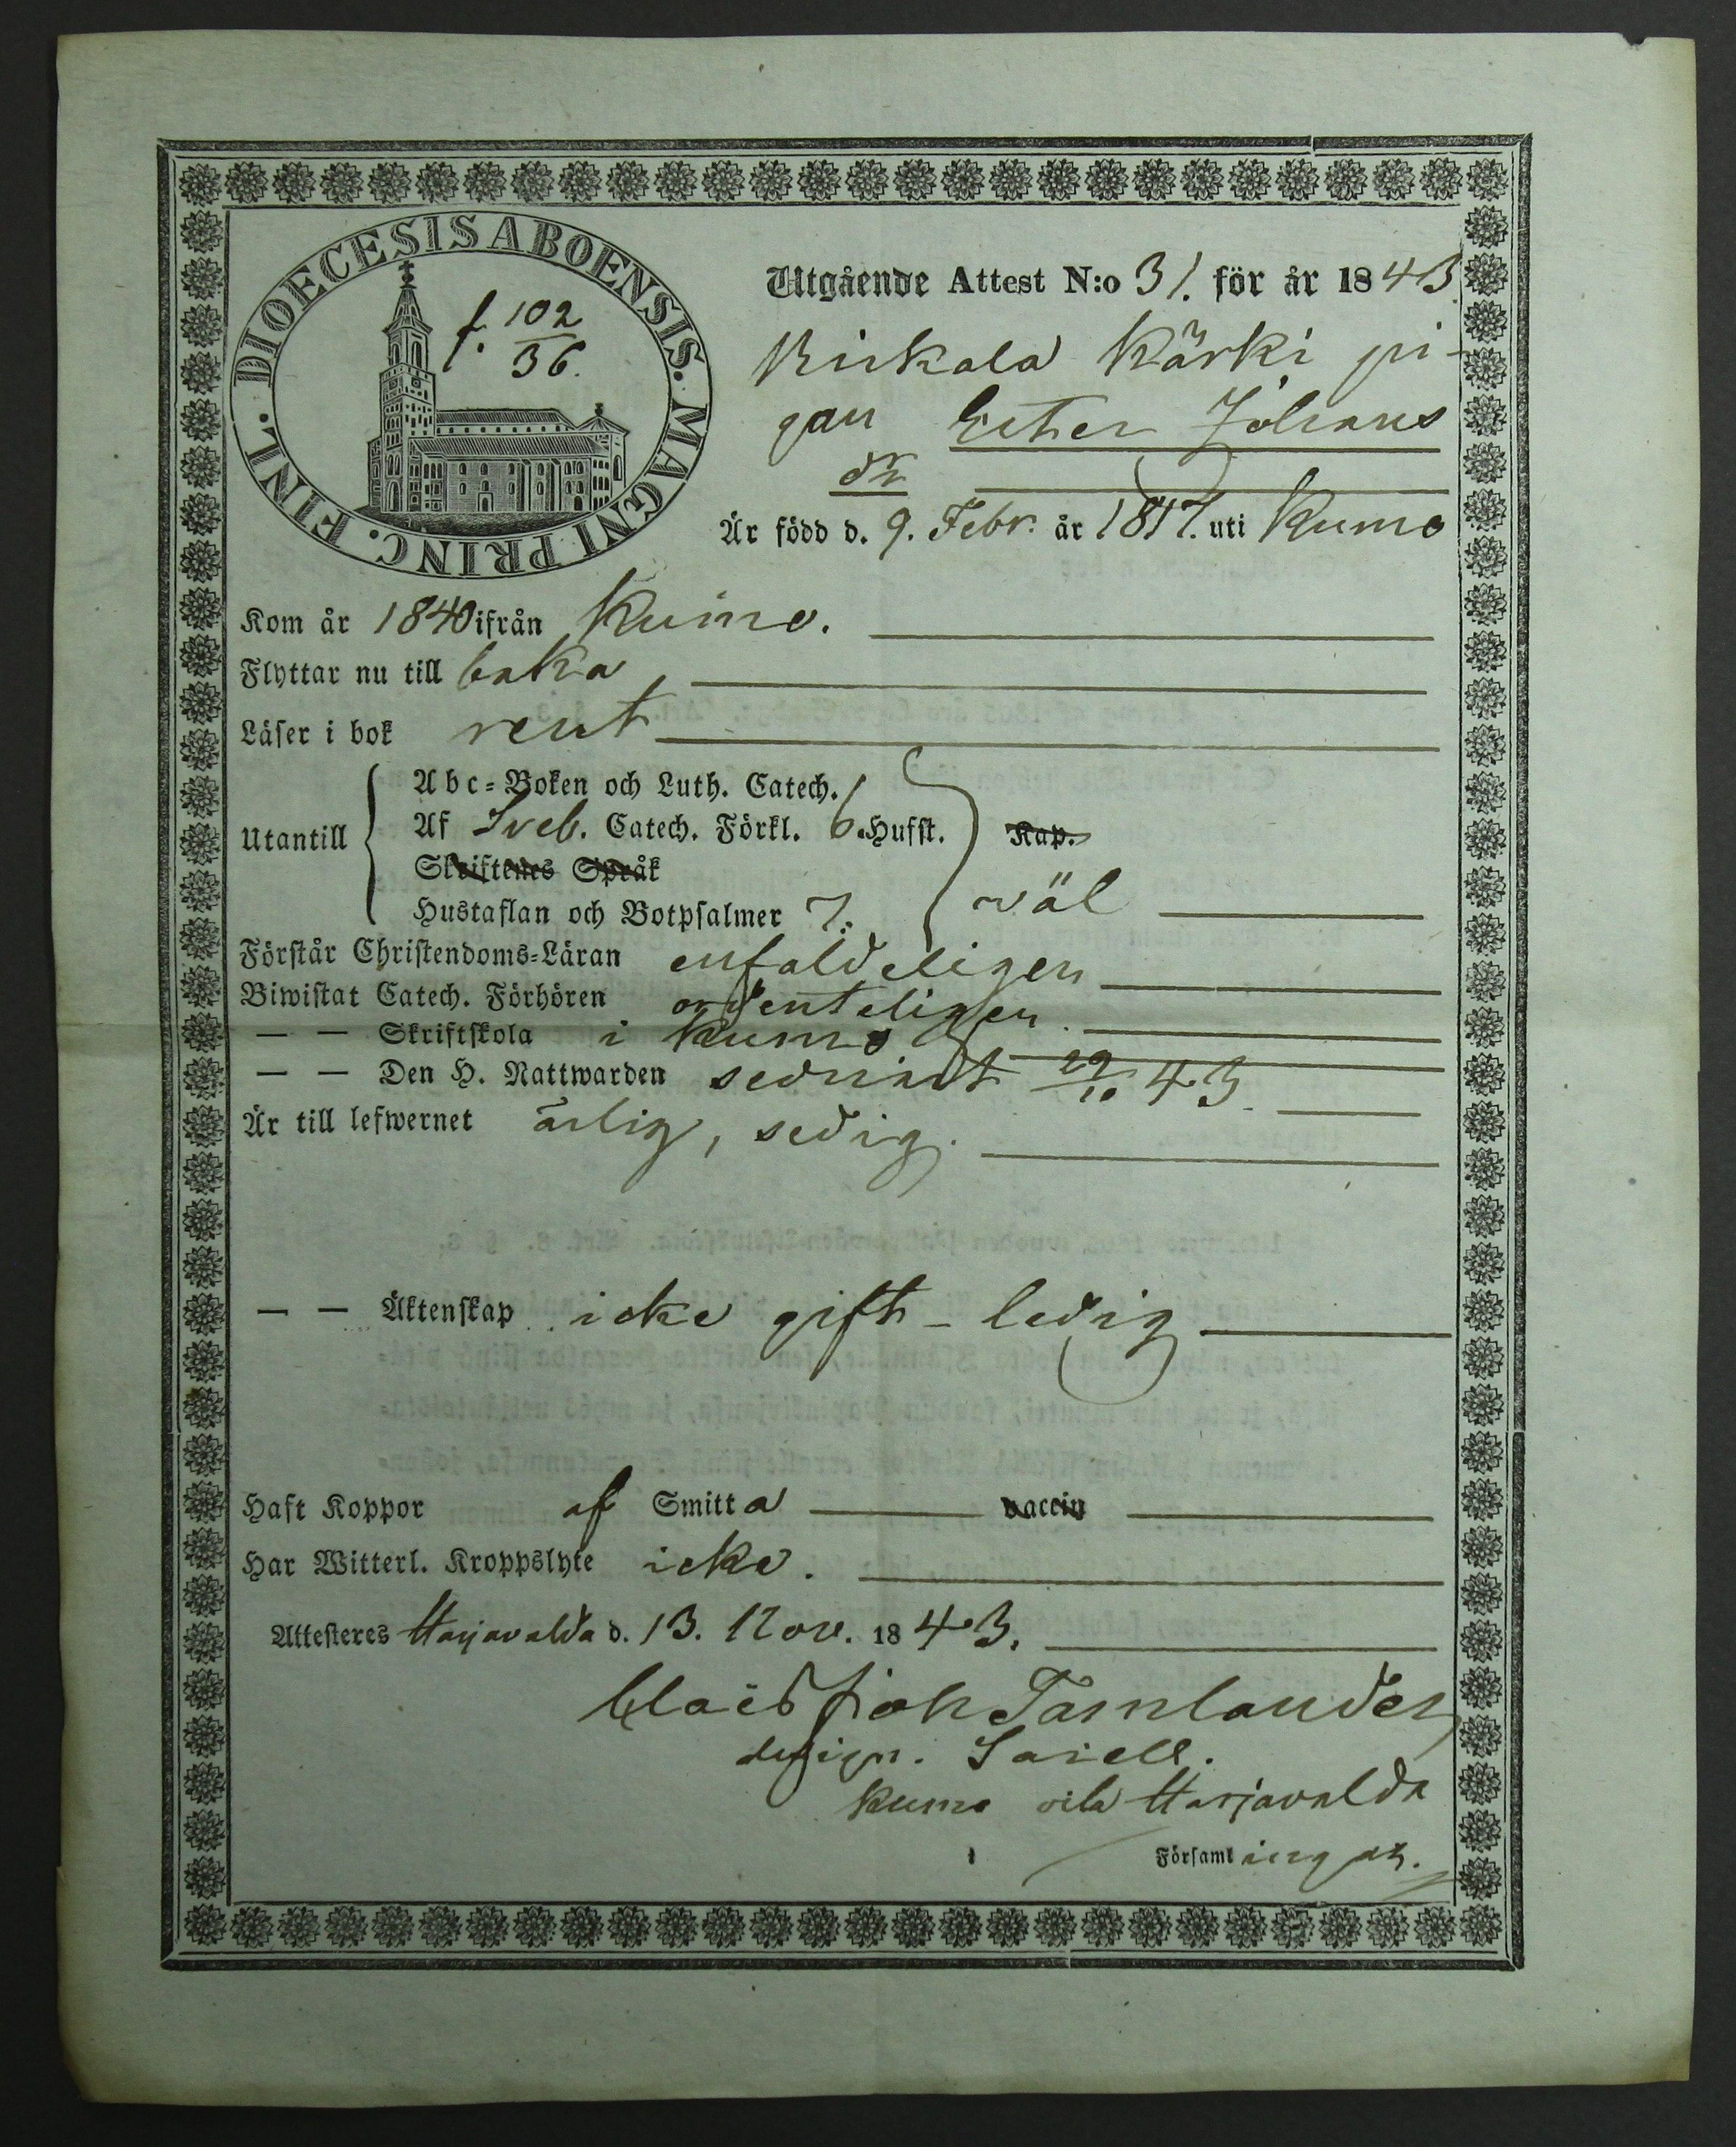 DIOECESIS ABOENSIS. MAGNI PRINC. FINL.
f. 102
36.
Utgående Attest N:o 31. för år 1843.
Kärki pi-
gan Ester Johans
dr
Är född d. 9. Febr. år 1817. uti Kumo
Kom år 1840 ifrån Kumo.
Flyttar nu till baka
Läser i bok rent
Utantill
Abc-Boken och Luth. Catech.
Af Sveb. Catech. Förkl. 6 Hufst. Kap.
Skriftenes Språk
Hustaflan och Botpsalmer 7. väl
Förstår Christendoms-Läran enfaldeligen
Biwistat Catech. Förhören ordenteligen.
— — Skriftskola i Kumo
— — Den H. Nattwarden sednast 29/10 43.
Är till lefwernet ärlig, sedig.
— — Äktenskap icke gift – ledig
Haft Koppor af Smitta vaccin
Har Witterl. Kroppslyte icke.
Attesteres Harjavalda d. 13. Nov. 1843.
Claës Joh Tamlander
design. Sacell.
Kumo Harjavalda
Församlingar.